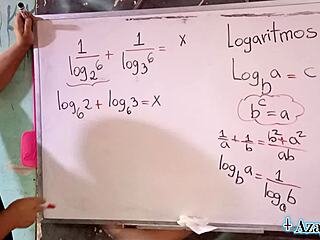 1/log₂6 + 1/log₃6 = x
log₆2 + log₆3 = x
Logaritmos
Log_b a = c
b^c = a
1/a + 1/b = b²+a²/ab
log_b a = 1/log_a b
+ Aza